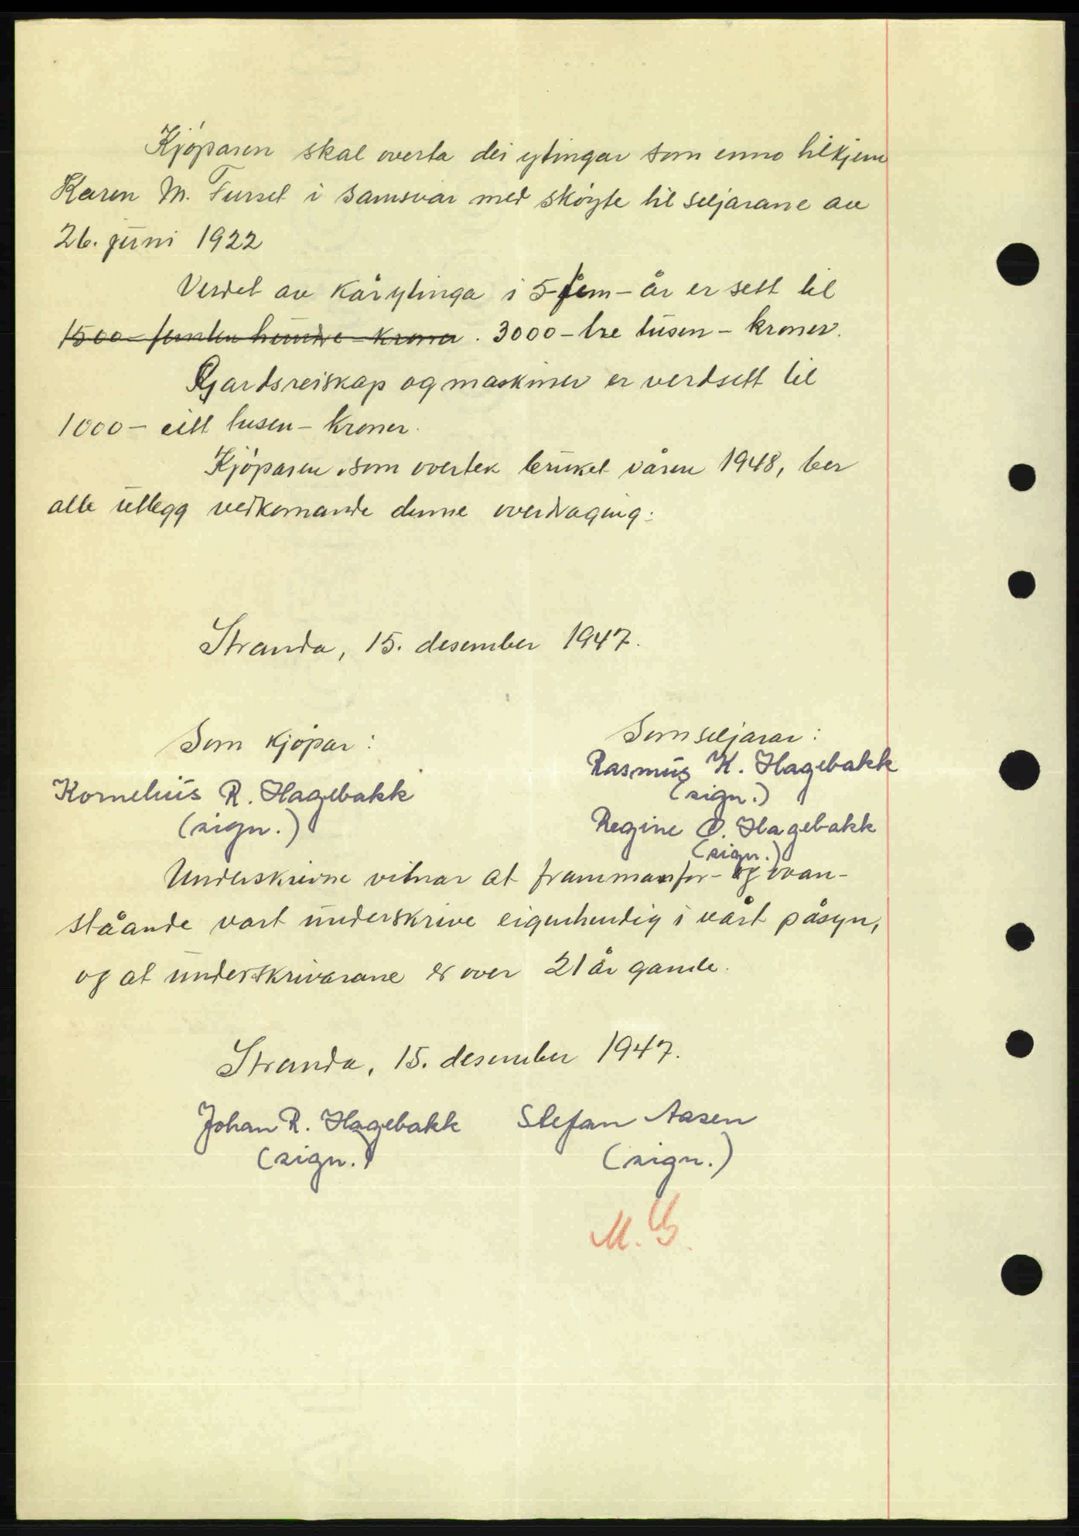 Kjöparen skal overta dei ytingar som enno tilkjem
Karen M. Furset i samsvar med sköyte til seljarane av
26. juni 1922
Verdet av kårytinga i 5-fem-år er sett til
1500-femten hundre-kroner. 3000-tre tusen-kroner.
Gardsreiskap og maskiner er verdsett til
1000-eitt tusen-kroner.
Kjöparen som overtek bruket våren 1948, ber
alle utlegg vedkomande denne overdraging.
Stranda, 15. desember 1947.
Som kjöpar:
Kornelius R. Hagebakk
(sign.)
Som seljarar:
Rasmus K. Hagebakk
(sign.)
Regine O. Hagebakk
(sign.)
Underskrivne vitnar at frammanfor- og ovan-
ståande vart underskrive eigenhendig i vårt påsyn,
og at underskrivarane er over 21 år gamle.
Stranda, 15. desember 1947.
Johan R. Hagebakk Stefan Aasen
(sign.) (sign.)
M.G.